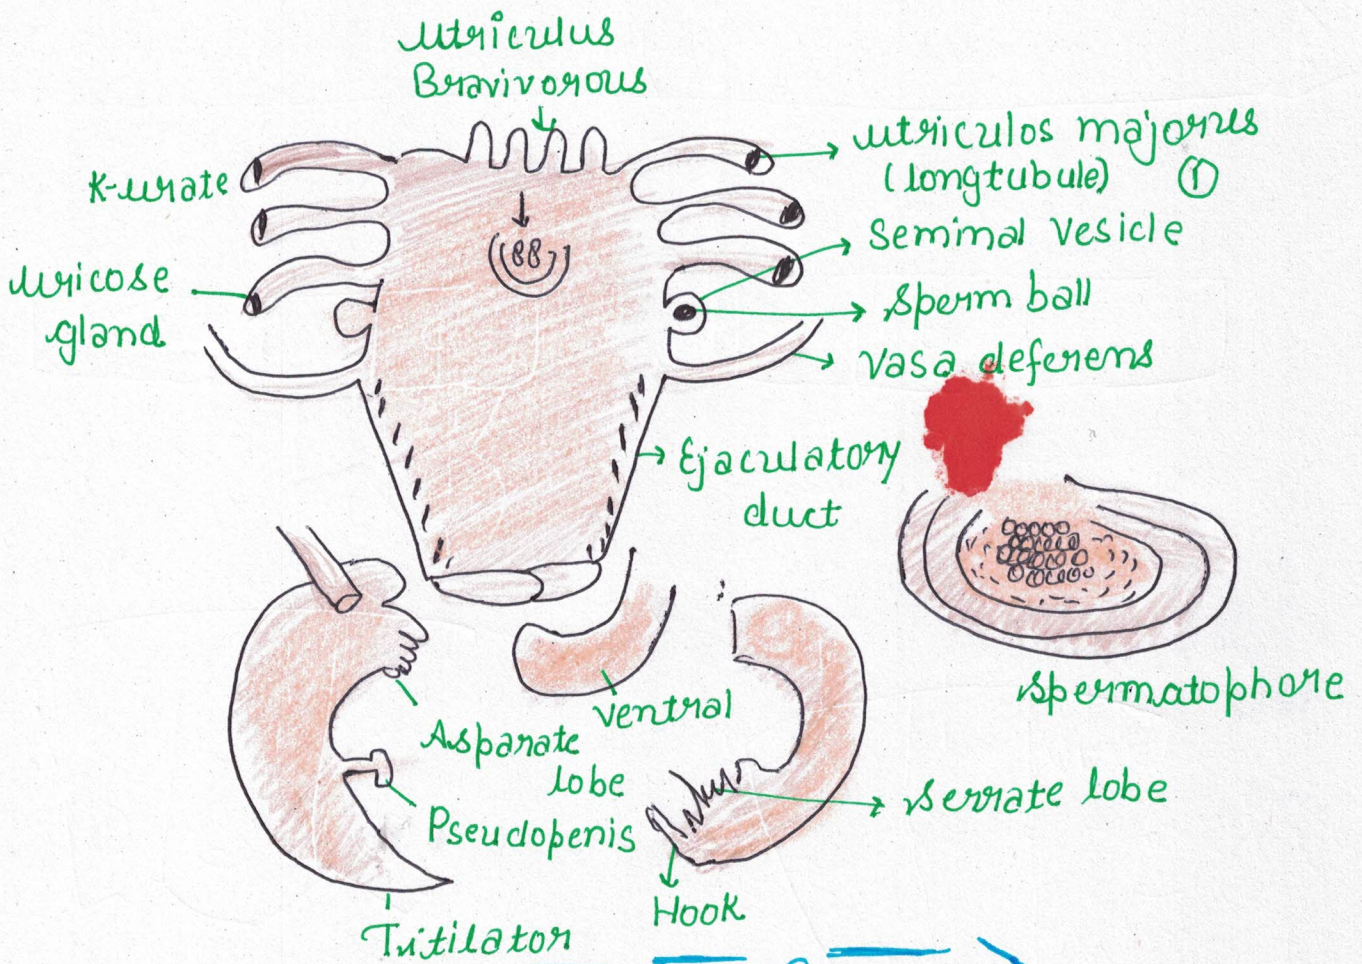 utriculus
Bravivorous
K-urate
uricose
gland
utriculos majorus
(longtubule) ①
Seminal vesicle
Sperm ball
vasa deferens
Ejaculatory
duct
88
spermatophore
ventral
Asparate
lobe
Pseudopenis
Serrate lobe
Hook
Tritilator